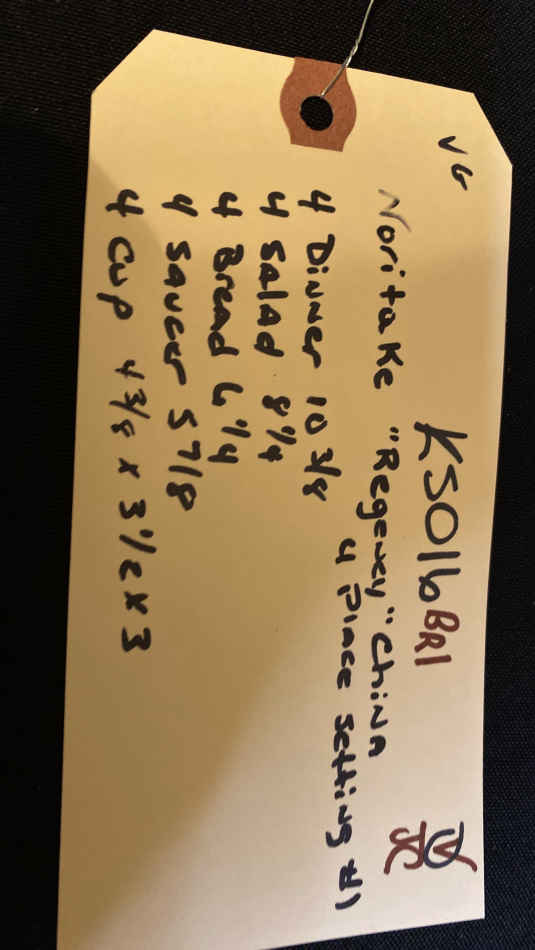 VG
KSO16 BR1
Noritake "Regency" China
4 Place Setting #1
4 Dinner 10 3/8
4 Salad 8 1/4
4 Bread 6 1/4
4 Saucer 5 7/8
4 Cup 4 3/8 x 3 1/2 x 3